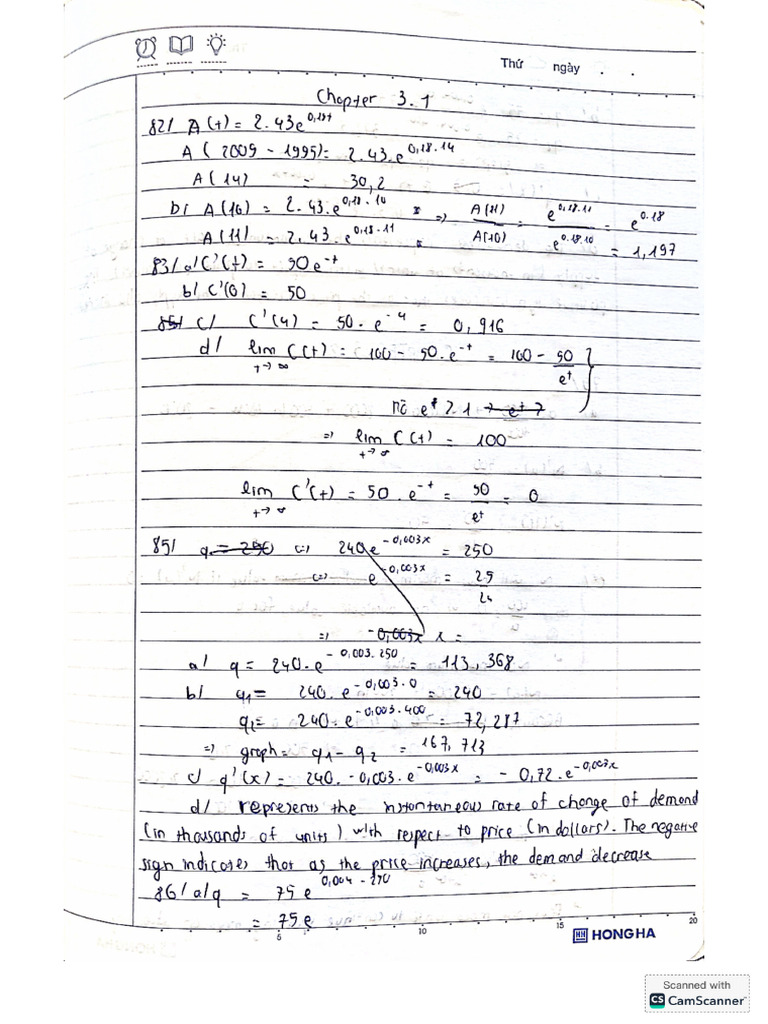 Thứ ngày . .
Chapter 3.1
82/ A(t) = 2.43e^0,18t
A(2009 - 1995) = 2.43.e^0,18.14
A(14) = 30,2
b/ A(10) = 2.43.e^0,18.10 => A(11)/A(10) = e^0,18.11/e^0.18.10 = e^0.18
A(11) = 2.43.e^0,18.11 = 1,197
83/ a/ C'(t) = 50e^-t
b/ C'(0) = 50
c/ C'(4) = 50.e^-4 = 0,916
d/ lim C(t) = 100 - 50.e^-t = 100 - 50/e^t
t->∞
mà e^t ≥ 1
=> lim C(t) = 100
t->∞
lim C'(t) = 50.e^-t = 50/e^t = 0
t->∞
85/ q = 250 <=> 240e^-0,003x = 250
<=> e^-0,003x = 25/24
=> -0,003x x =
a/ q = 240.e^-0,003.250 = 113,368
b/ q1 = 240.e^-0,003.0 = 240
q2 = 240.e^-0,003.400 = 72,287
=> graph = q1 - q2 = 167,713
c/ q'(x) = 240.-0,003.e^-0,003x = -0,72.e^-0,003x
d/ represents the instantaneous rate of change of demand
(in thousands of units) with respect to price (in dollars). The negative
sign indicates that as the price increases, the demand decrease
86/ a/ q = 75e^0,004-250
= 75e
5 10 15 20
HH HONG HA
Scanned with
CS CamScanner